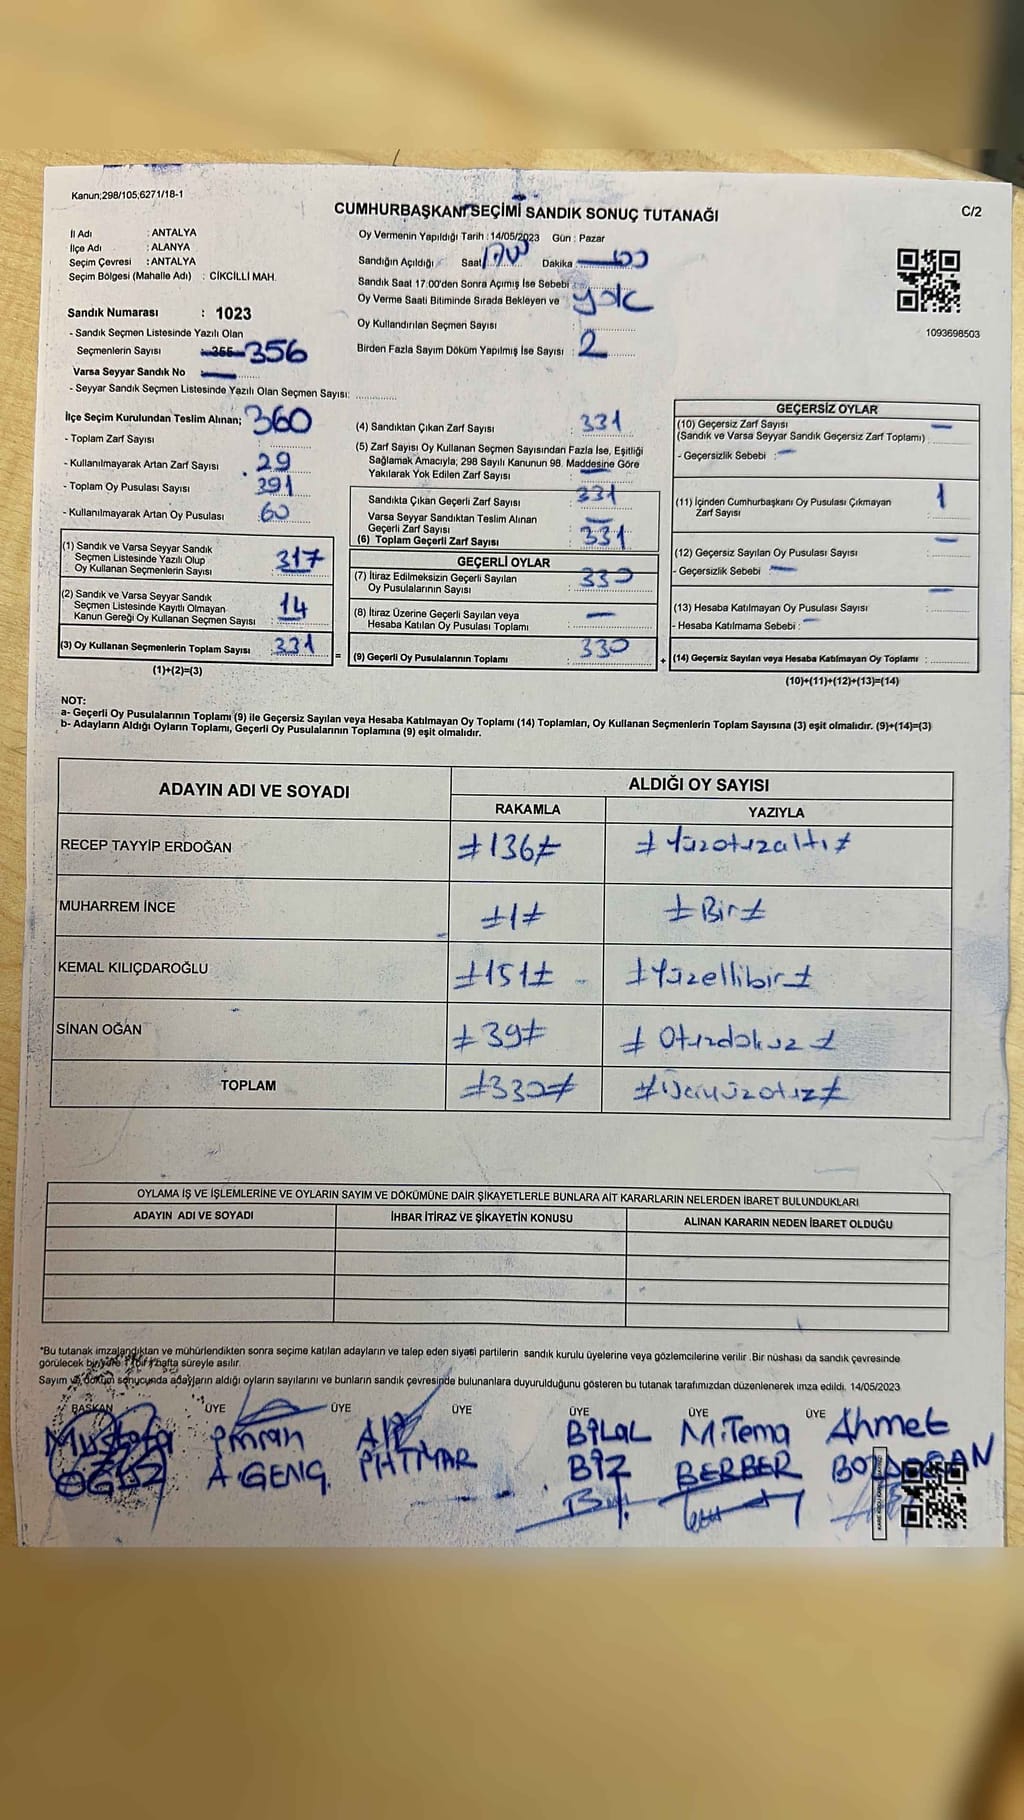 Kanun;298/105;6271/18-1
CUMHURBAŞKANI SEÇİMİ SANDIK SONUÇ TUTANAĞI
C/2
İl Adı : ANTALYA
İlçe Adı : ALANYA
Seçim Çevresi : ANTALYA
Seçim Bölgesi (Mahalle Adı) : CİKCİLLİ MAH.
Sandık Numarası : 1023
- Sandık Seçmen Listesinde Yazılı Olan
Seçmenlerin Sayısı : 355 356
Varsa Seyyar Sandık No
- Seyyar Sandık Seçmen Listesinde Yazılı Olan Seçmen Sayısı:
Oy Vermenin Yapıldığı Tarih : 14/05/2023 Gün : Pazar
Sandığın Açıldığı Saat Dakika
Sandık Saat 17:00'den Sonra Açımış İse Sebebi :
Oy Verme Saati Bitiminde Sırada Bekleyen ve yok
Oy Kullandırılan Seçmen Sayısı
Birden Fazla Sayım Döküm Yapılmış İse Sayısı : 2
1093698503
İlçe Seçim Kurulundan Teslim Alınan; 360
- Toplam Zarf Sayısı
- Kullanılmayarak Artan Zarf Sayısı : 29
- Toplam Oy Pusulası Sayısı : 391
- Kullanılmayarak Artan Oy Pusulası : 60
(1) Sandık ve Varsa Seyyar Sandık
Seçmen Listesinde Yazılı Olup
Oy Kullanan Seçmenlerin Sayısı : 317
(2) Sandık ve Varsa Seyyar Sandık
Seçmen Listesinde Kayıtlı Olmayan
Kanun Gereği Oy Kullanan Seçmen Sayısı : 14
(3) Oy Kullanan Seçmenlerin Toplam Sayısı : 331
(1)+(2)=(3)
(4) Sandıktan Çıkan Zarf Sayısı : 331
(5) Zarf Sayısı Oy Kullanan Seçmen Sayısından Fazla İse, Eşitliği
Sağlamak Amacıyla; 298 Sayılı Kanunun 98. Maddesine Göre
Yakılarak Yok Edilen Zarf Sayısı
Sandıkta Çıkan Geçerli Zarf Sayısı : 331
Varsa Seyyar Sandıktan Teslim Alınan
Geçerli Zarf Sayısı : —
(6) Toplam Geçerli Zarf Sayısı : 331
GEÇERLİ OYLAR
(7) İtiraz Edilmeksizin Geçerli Sayılan
Oy Pusulalarının Sayısı : 330
(8) İtiraz Üzerine Geçerli Sayılan veya
Hesaba Katılan Oy Pusulası Toplamı : —
= (9) Geçerli Oy Pusulalarının Toplamı : 330
GEÇERSİZ OYLAR
(10) Geçersiz Zarf Sayısı —
(Sandık ve Varsa Seyyar Sandık Geçersiz Zarf Toplamı)
- Geçersizlik Sebebi : —
(11) İçinden Cumhurbaşkanı Oy Pusulası Çıkmayan 1
Zarf Sayısı
(12) Geçersiz Sayılan Oy Pusulası Sayısı : —
- Geçersizlik Sebebi : —
(13) Hesaba Katılmayan Oy Pusulası Sayısı : —
- Hesaba Katılmama Sebebi : —
+ (14) Geçersiz Sayılan veya Hesaba Katılmayan Oy Toplamı :
(10)+(11)+(12)+(13)=(14)
NOT:
a- Geçerli Oy Pusulalarının Toplamı (9) ile Geçersiz Sayılan veya Hesaba Katılmayan Oy Toplamı (14) Toplamları, Oy Kullanan Seçmenlerin Toplam Sayısına (3) eşit olmalıdır. (9)+(14)=(3)
b- Adayların Aldığı Oyların Toplamı, Geçerli Oy Pusulalarının Toplamına (9) eşit olmalıdır.
ADAYIN ADI VE SOYADI ALDIĞI OY SAYISI
RAKAMLA YAZIYLA
RECEP TAYYİP ERDOĞAN ≠136≠ ≠Yüzotuzaltı≠
MUHARREM İNCE ≠1≠ ≠Bir≠
KEMAL KILIÇDAROĞLU ≠151≠ ≠Yüzellibir≠
SİNAN OĞAN ≠39≠ ≠Otuzdokuz≠
TOPLAM ≠330≠ ≠Üçyüzotuz≠
OYLAMA İŞ VE İŞLEMLERİNE VE OYLARIN SAYIM VE DÖKÜMÜNE DAİR ŞİKAYETLERLE BUNLARA AİT KARARLARIN NELERDEN İBARET BULUNDUKLARI
ADAYIN ADI VE SOYADI İHBAR İTİRAZ VE ŞİKAYETİN KONUSU ALINAN KARARIN NEDEN İBARET OLDUĞU
*Bu tutanak imzalandıktan ve mühürlendikten sonra seçime katılan adayların ve talep eden siyasi partilerin sandık kurulu üyelerine veya gözlemcilerine verilir .Bir nüshası da sandık çevresinde
görülecek bir yere 1 (bir) hafta süreyle asılır.
Sayım ve döküm sonucunda adayların aldığı oyların sayılarını ve bunların sandık çevresinde bulunanlara duyurulduğunu gösteren bu tutanak tarafımızdan düzenlenerek imza edildi. 14/05/2023
BAŞKAN ÜYE ÜYE ÜYE ÜYE ÜYE ÜYE
Mustafa BİLAL M.Tema Ahmet
OĞUZ A GENÇ BİZ BERBER